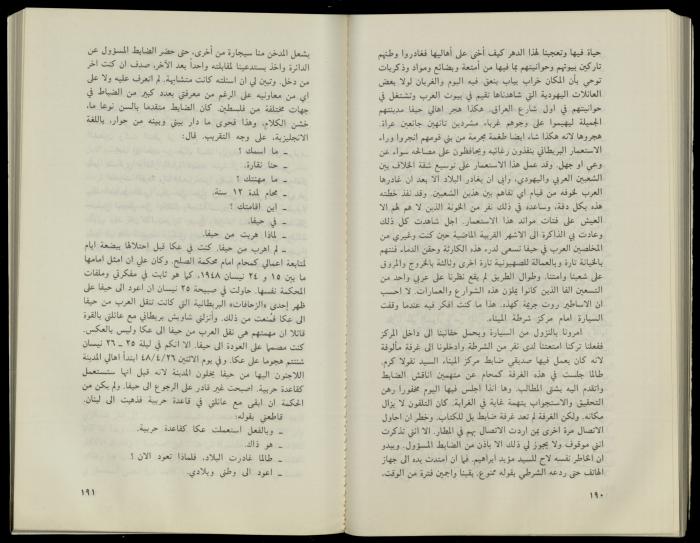 حياة فيها وتعجبنا لهذا الدهر كيف أخنى على أهاليها فغادروا وطنهم
تاركين بيوتهم وحوانيتهم بما فيها من أمتعة وبضائع ومواد وذكريات
توحي بأن المكان خراب يباب ينعق فيه البوم والغربان لولا بعض
العائلات اليهودية التي شاهدناها تقيم في بيوت العرب وتشتغل في
حوانيتهم في اول شارع العراق. هكذا هجر اهالي حيفا مدينتهم
الجميلة ليهيموا على وجوههم غرباء مشردين تائهين جائعين عراة.
هجروها لانه هكذا شاء ايضا طغمة مجرمة من بني قومهم انجروا وراء
الاستعمار البريطاني ينفذون رغائبه ويحافظون على مصالحه سواء عن
وعي او جهل. وقد عمل هذا الاستعمار على توسيع شقة الخلاف بين
الشعبين العربي واليهودي، وابى ان يغادر البلاد الا بعد ان غادرها
العرب لخوفه من قيام اي تفاهم بين هذين الشعبين. وقد نفذ خطته
هذه بكل دقة، وساعده في ذلك نفر من الخونة الذين لا هم لهم الا
العيش على فتات موائد هذا الاستعمار. اجل شاهدت كل ذلك
وعادت بي الذاكرة الى الاشهر القريبة الماضية حين كنت وغيري من
المخلصين العرب في حيفا نسعى لدرء هذه الكارثة وحقن الدماء، فنتهم
بالخيانة تارة وبالعمالة للصهيونية تارة اخرى وثالثة بالخروج والمروق
على شعبنا وامتنا. وطوال الطريق لم يقع نظرنا على عربي واحد من
التسعين الفا الذين كانوا يملؤن هذه الشوارع والعمارات. لا احسب
ان الاساطير روت جريمة كهذه. هذا ما كنت افكر فيه عندما وقفت
السيارة امام مركز شرطة الميناء.
امرونا بالنزول من السيارة وبحمل حقائبنا الى داخل المركز
ففعلنا تركنا امتعتنا لدى نفر من الشرطة وادخلونا الى غرفة مألوفة
لانه كان يعمل فيها صديقي ضابط مركز الميناء السيد نقولا كرم.
طالما جلست في هذه الغرفة كمحام عن متهمين اناقش الضابط
واتقدم اليه بشتى المطالب. وها انذا اجلس فيها اليوم مخفورا رهن
التحقيق والاستجواب بتهمة غاية في الغرابة. كان التلفون لا يزال
مكانه. ولكن الغرفة لم تعد غرفة ضابط بل للكتاب. وخطر ان احاول
الاتصال مرة اخرى بمن اردت الاتصال بهم في المطار. الا انني تذكرت
انني موقوف ولا يجوز لي ذلك الا باذن من الضابط المسؤول. ويبدو
ان الخاطر نفسه لاح للسيد مؤيد ابراهيم. فما ان امتدت يده الى جهاز
الهاتف حتى ردعه الشرطي بقوله ممنوع. بقينا واجمين فترة من الوقت،
١٩٠
يشعل المدخن منا سيجارة من أخرى، حتى حضر الضابط المسؤول عن
الدائرة واخذ يستدعينا لمقابلته واحداً بعد الآخر، صدف ان كنت اخر
من دخل. وتبين لي ان اسئلته كانت متشابهة. لم اتعرف عليه ولا على
اي من معاونيه على الرغم من معرفتي بعدد كبير من الضباط في
جهات مختلفة من فلسطين. كان الضابط متقدما بالسن نوعا ما،
خشن الكلام، وهذا فحوى ما دار بيني وبينه من حوار، باللغة
الانجليزية، على وجه التقريب. قال:
ـ ما اسمك ؟
ـ حنا نقارة.
ـ ما مهنتك ؟
ـ محام لمدة ١٢ سنة.
ـ اين اقامتك ؟
ـ في حيفا.
ـ لماذا هربت من حيفا.
ـ لم اهرب من حيفا. كنت في عكا قبل احتلالها ببضعة ايام
لمتابعة اعمالي كمحام امام محكمة الصلح. وكان علي ان امثل امامها
ما بين ١٥ و ٢٤ نيسان ١٩٤٨. كما هو ثابت في مفكرتي وملفات
المحكمة نفسها. حاولت في صبيحة ٢٥ نيسان ان اعود الى حيفا على
ظهر إحدى «الزحافات» البريطانية التي كانت تنقل العرب من حيفا
الى عكا فمُنعت من ذلك. وأنزلني شاويش بريطاني مع عائلتي بالقوة
قائلا ان مهمتهم هي نقل العرب من حيفا الى عكا وليس بالعكس.
كنت مصمما على العودة الى حيفا. الا انكم في ليلة ٢٥ ـ ٢٦ نيسان
شننتم هجوما على عكا. وفي يوم الاثنين ٤٨/٤/٢٦ ابتدأ أهالي المدينة
اللاجئون اليها من حيفا يخلون المدينة لانه قيل انها ستستعمل
كقاعدة حربية. اصبحت غير قادر على الرجوع الى حيفا. ولم يكن من
الحكمة ان ابقى مع عائلتي في قاعدة حربية فذهبت الى لبنان.
قاطعني بقوله:
ـ وبالفعل استعملت عكا كقاعدة حربية.
ـ هو ذاك.
ـ طالما غادرت البلاد، فلماذا تعود الان ؟
ـ اعود الى وطني وبلادي.
١٩١